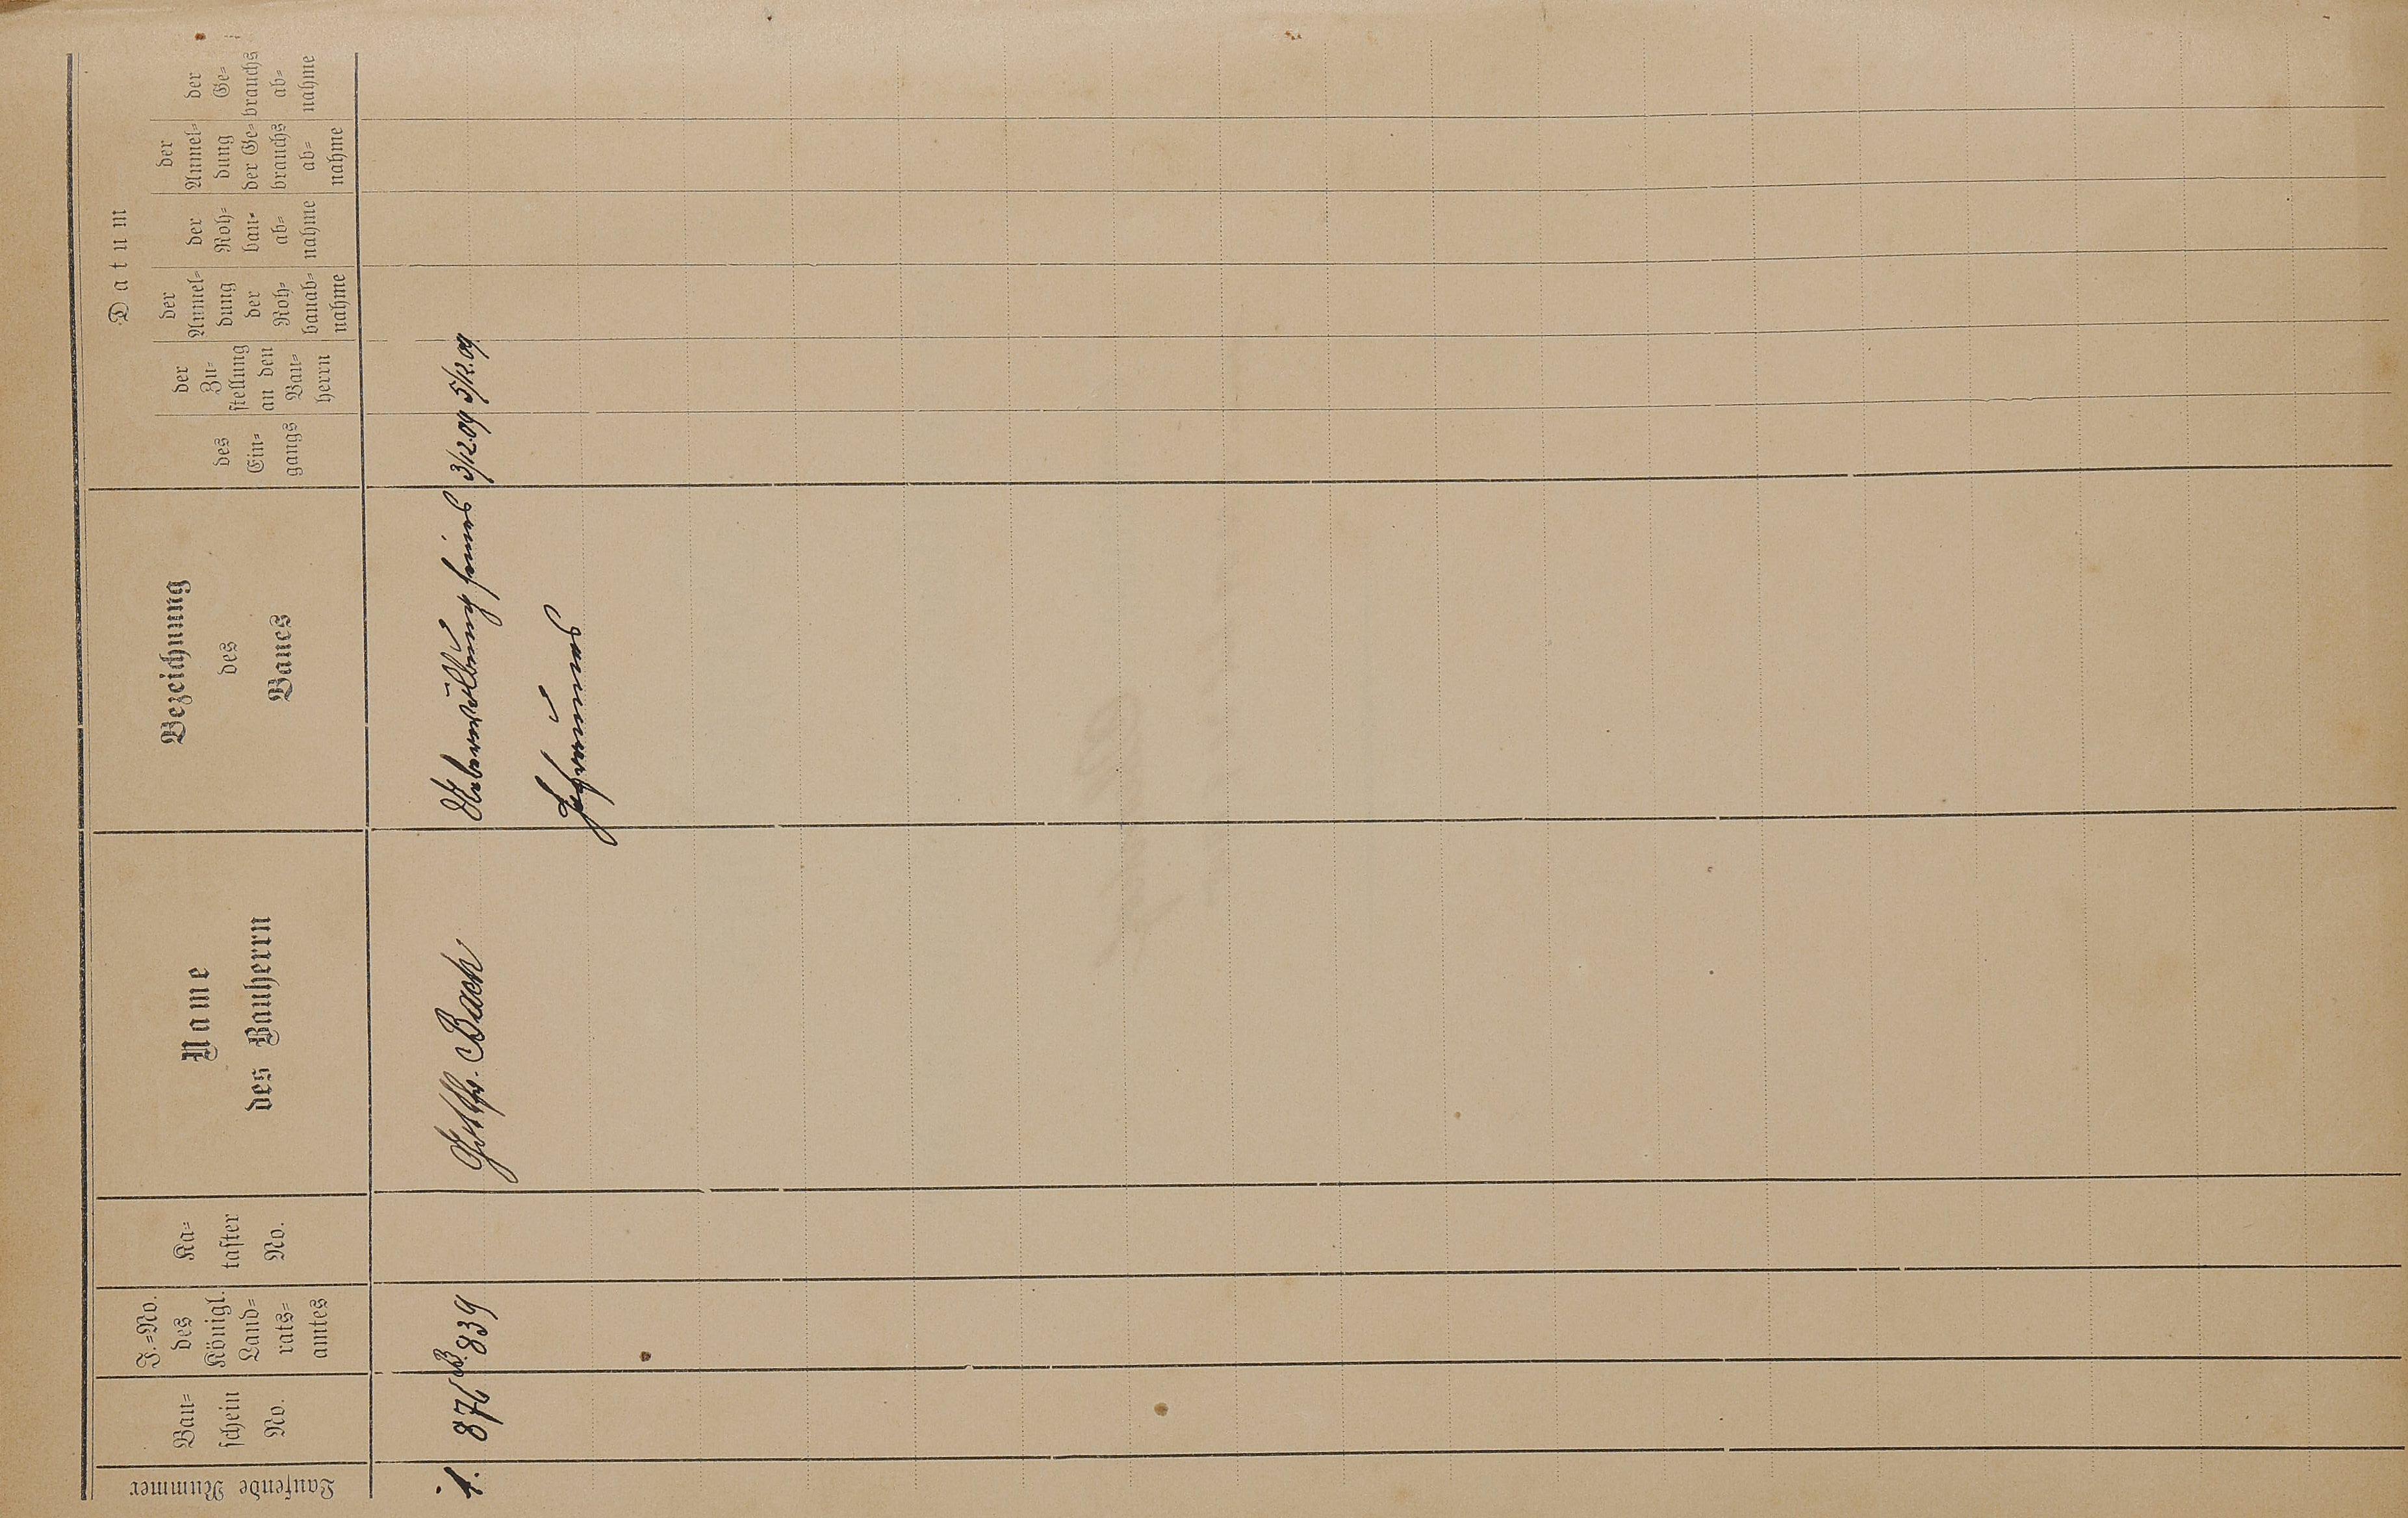 Laufende Nummer
Bau=
schein
No.
J.=No.
des
Königl.
Land=
rats=
amtes
Ka=
taster
No.
Name
des Bauherrn
Bezeichnung
des
Baues
Datum
des
Ein=
gangs
der
Zu=
stellung
an den
Bau=
herrn
der
Anmel=
dung
der
Roh=
bauab=
nahme
der
Roh=
bau=
ab=
nahme
der
Anmel=
dung
der Ge=
brauchs
ab=
nahme
der
Ge=
brauchs
ab=
nahme
1. 876 B. 839 Gottfr. Bach Ueberwölbung seines 3/12.09 5/12.09